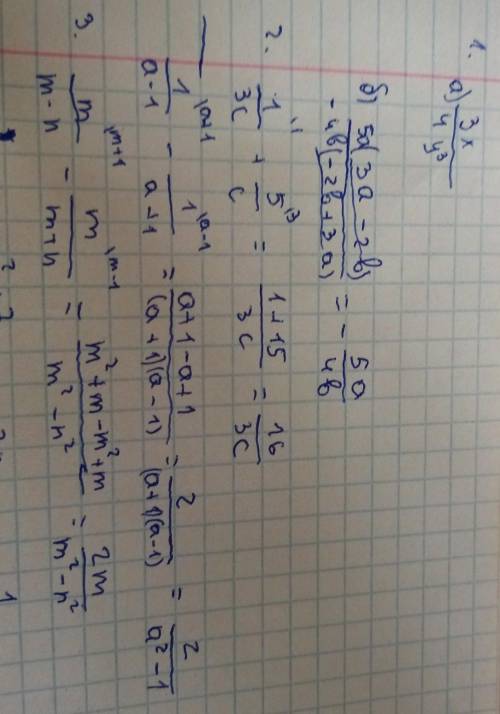 1. а) 3x/4y³
б) 5a(3a - 2b)/-4b(-2b+3a) = - 5a/4b
2. 1/3c ⁽¹ + 5/c ⁽³ = 1+15/3c = 16/3c
1/a-1 ⁽a+1 - 1/a+1 ⁽a-1 = a+1-a+1/(a+1)(a-1) = 2/(a+1)(a-1) = 2/a²-1
3. m/m-n ⁽m+1 - m/m+n ⁽m-1 = m²+m-m²+m/m²-n² = 2m/m²-n²